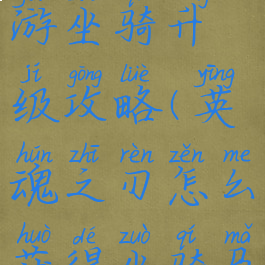 游坐骑升
jí gōng lüè yīng
级攻略(英
hún zhī rèn zěn me
魂之刃怎么
huò dé zuò qí mǎ
获得坐骑马